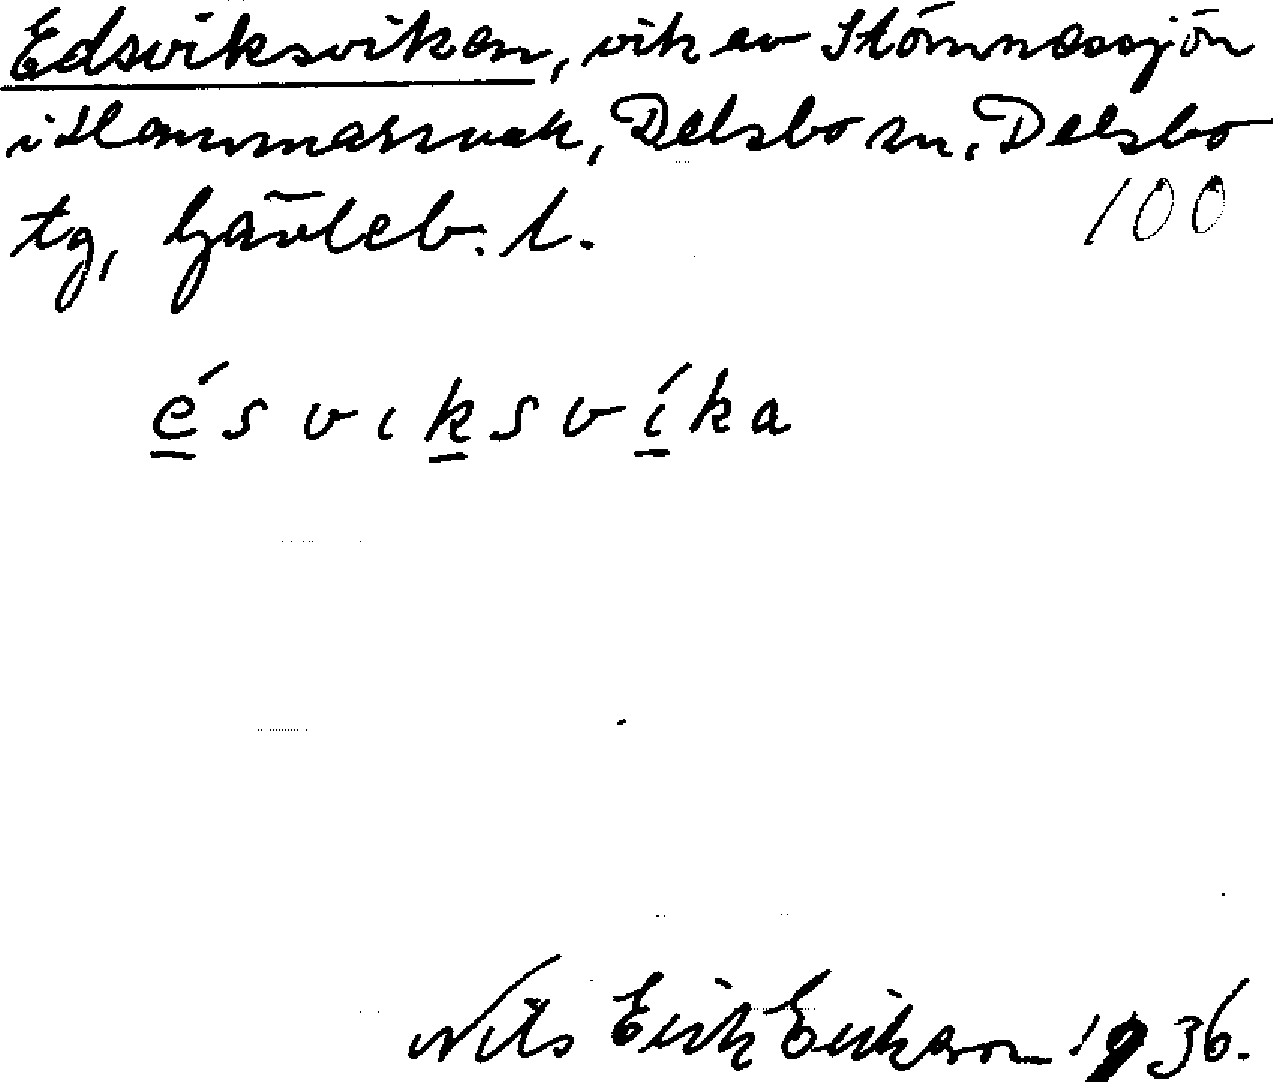 Edsviksviken, vik av Stömnessjön
i Hammarsvak, Delsbo sn, Delsbo
tg, Gävleb. l. 100
é s v ı k s v í k a
Nils Erik Erikson 1936.